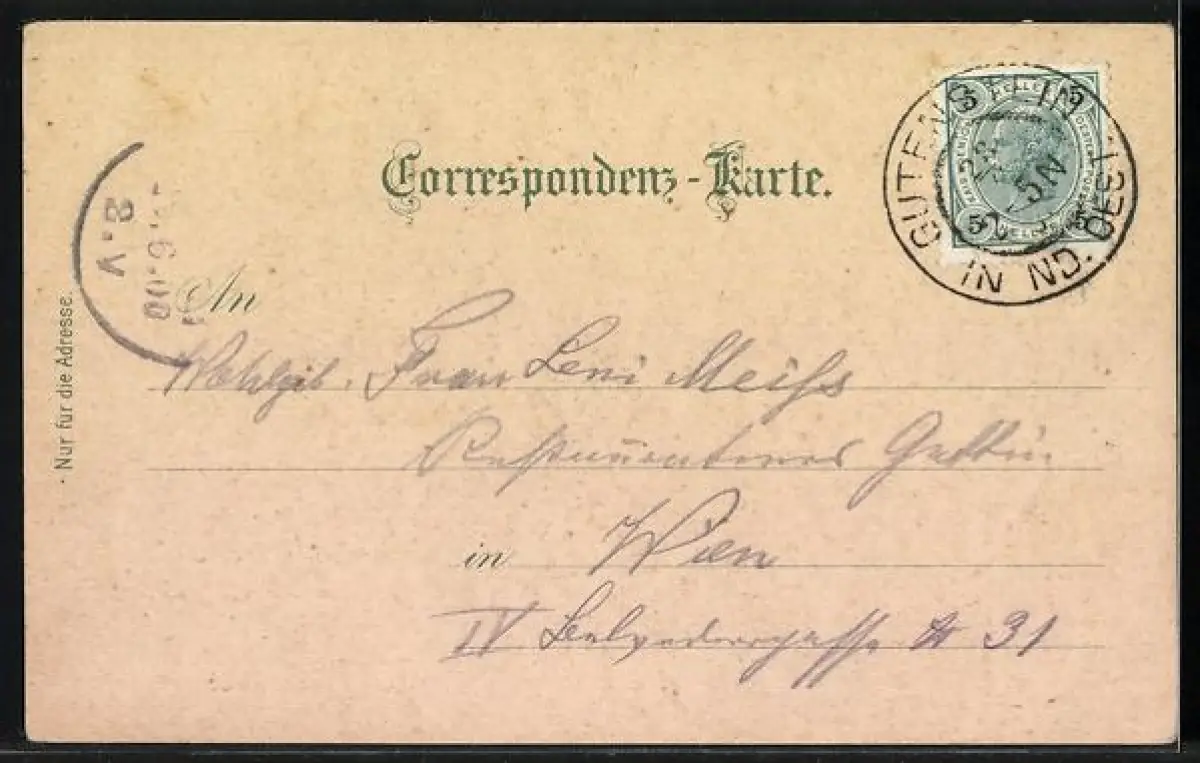 Correspondenz-Karte.
GUTENSTEIN IN ND. OEST.
5 5
5 5
6.00
8.V
An
Nur für die Adresse.
Wohlgeb. Frau Leni Meiss
Restaurateurs Gattin
in Wien
IV Belvederegasse 31